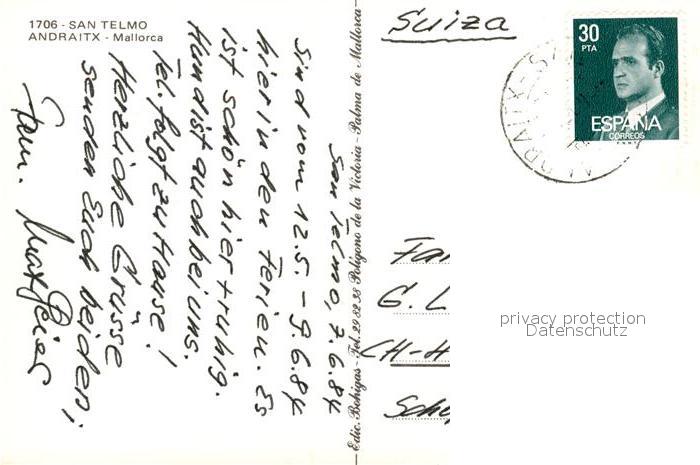 1706 - SAN TELMO
ANDRAITX - Mallorca
San Telmo, 7.6.84
Sind vom 12.5. - 9.6.84
hier in den Ferien. Es
ist schön hier + ruhig.
Hondist auch bei uns.
Tel. folgt zu Hause!
Herzliche Grüsse
senden Euch beiden:
Fam.
Edic. Bohigas - Tel. 29 82 38 Polígono de la Victoria - Palma de Mallorca
Suiza
30
PTA
ESPAÑA
CORREOS
ANDRAITX
Fa
G. L
CH-H
Sch
privacy protection
Datenschutz